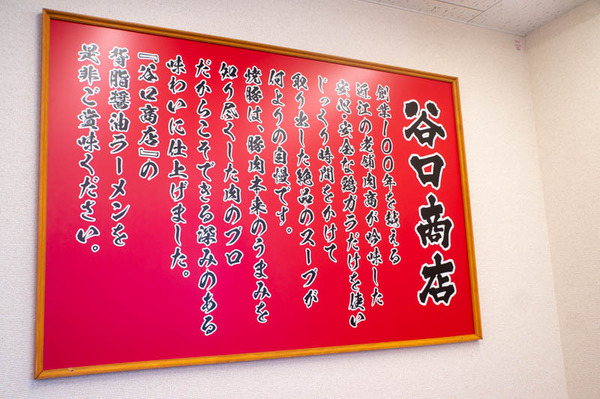 谷口商店
創業100年を越える
近江の老舗肉商が吟味した
安心・安全な鶏ガラだけを使い
じっくり時間をかけて
取り出した絶品のスープが
何よりの自慢です。
焼豚は、豚肉本来のうまみを
知り尽くした肉のプロ
だからこそできる深みのある
味わいに仕上げました。
『谷口商店』の
背脂醤油ラーメンを
是非ご賞味ください。